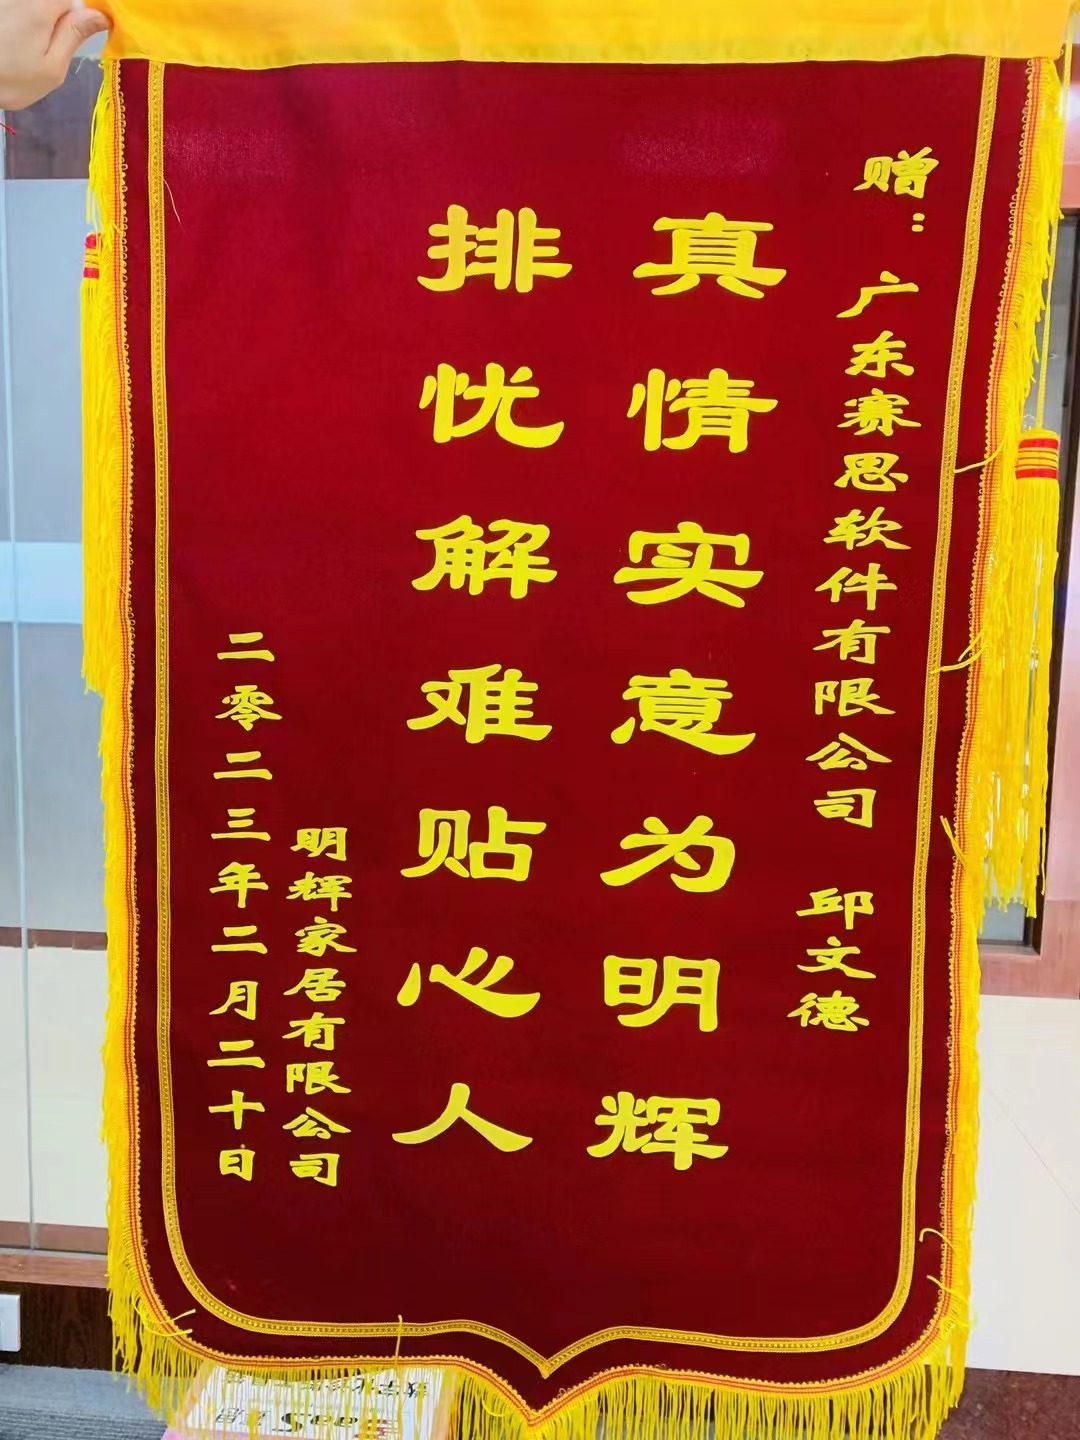 赠：广东赛思软件有限公司 邱文德
真情实意为明辉
排忧解难贴心人
明辉家居有限公司
二零二三年二月二十日